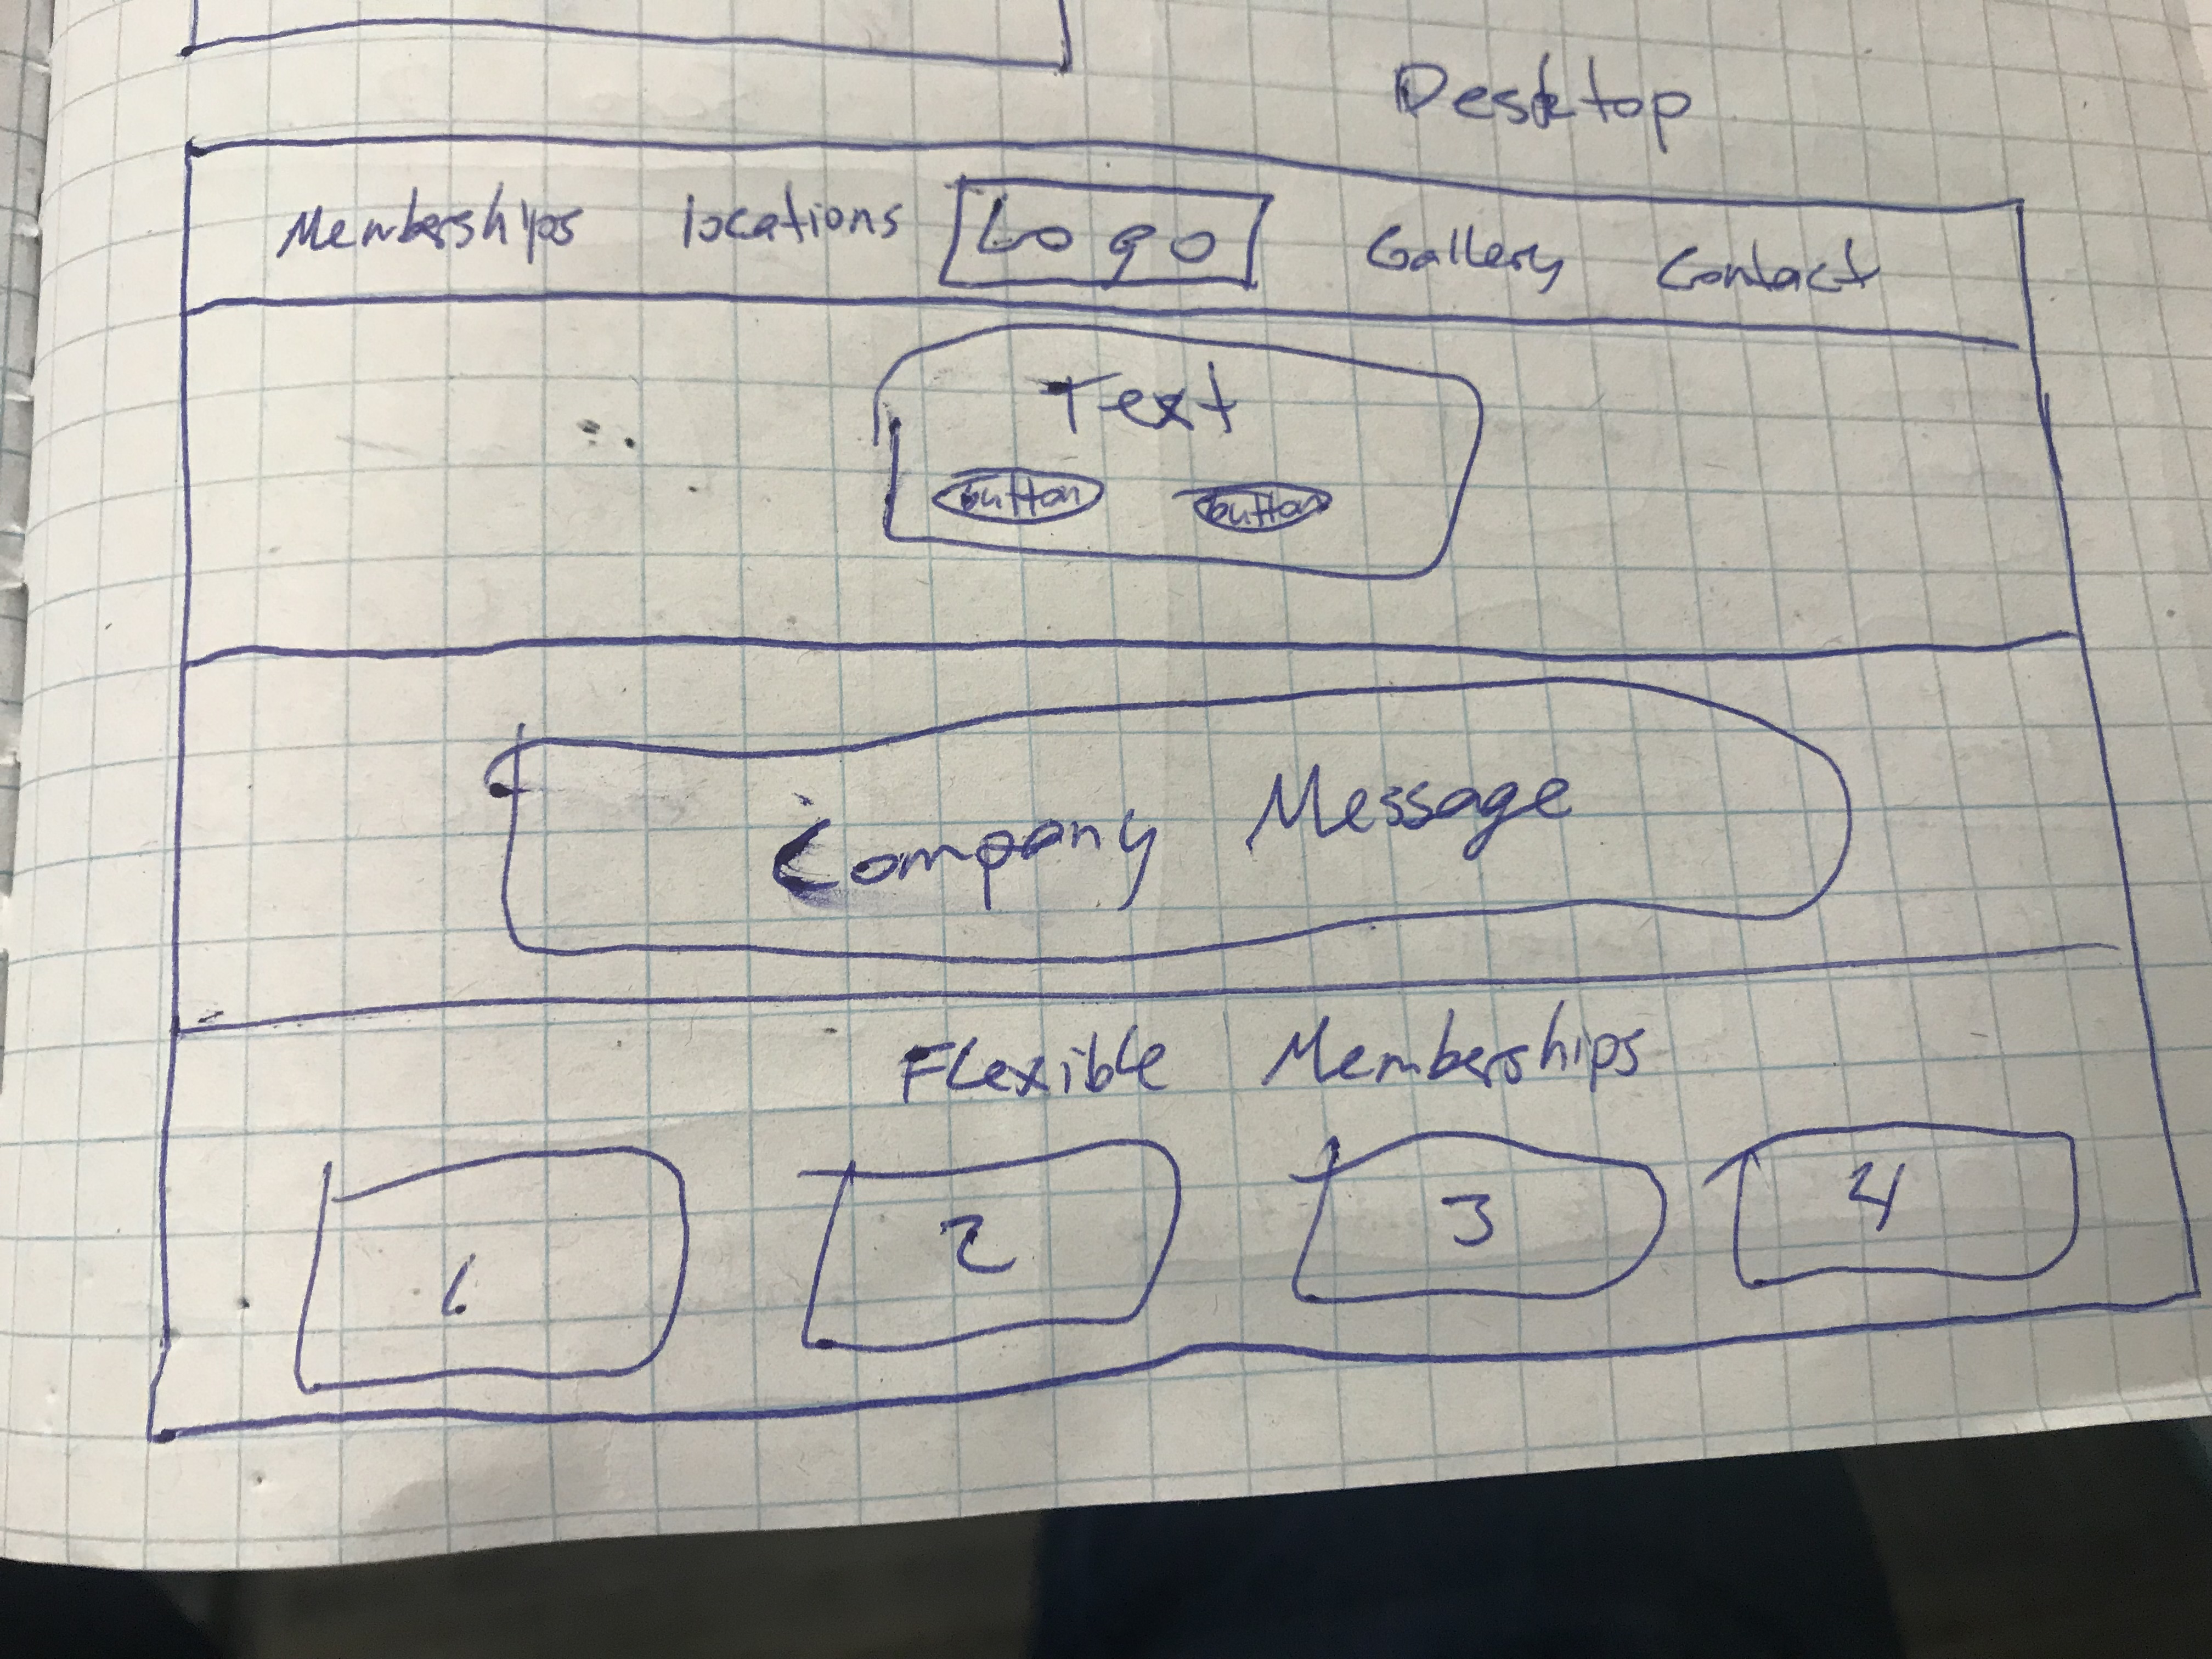 Desktop
Memberships locations Logo Gallery Contact
Text
button button
Company Message
Flexible Memberships
1 2 3 4